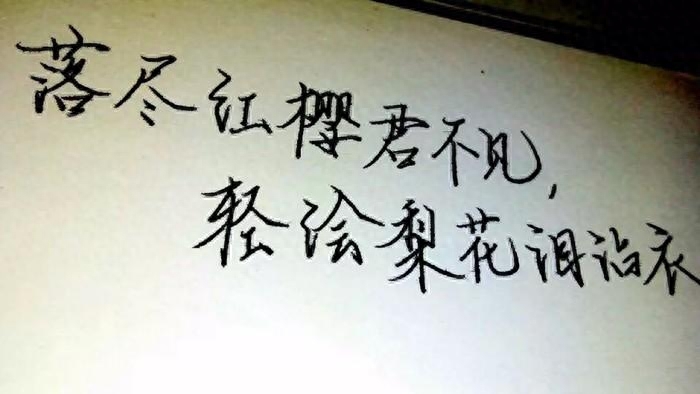 落尽红樱君不见,
轻绘梨花泪沾衣